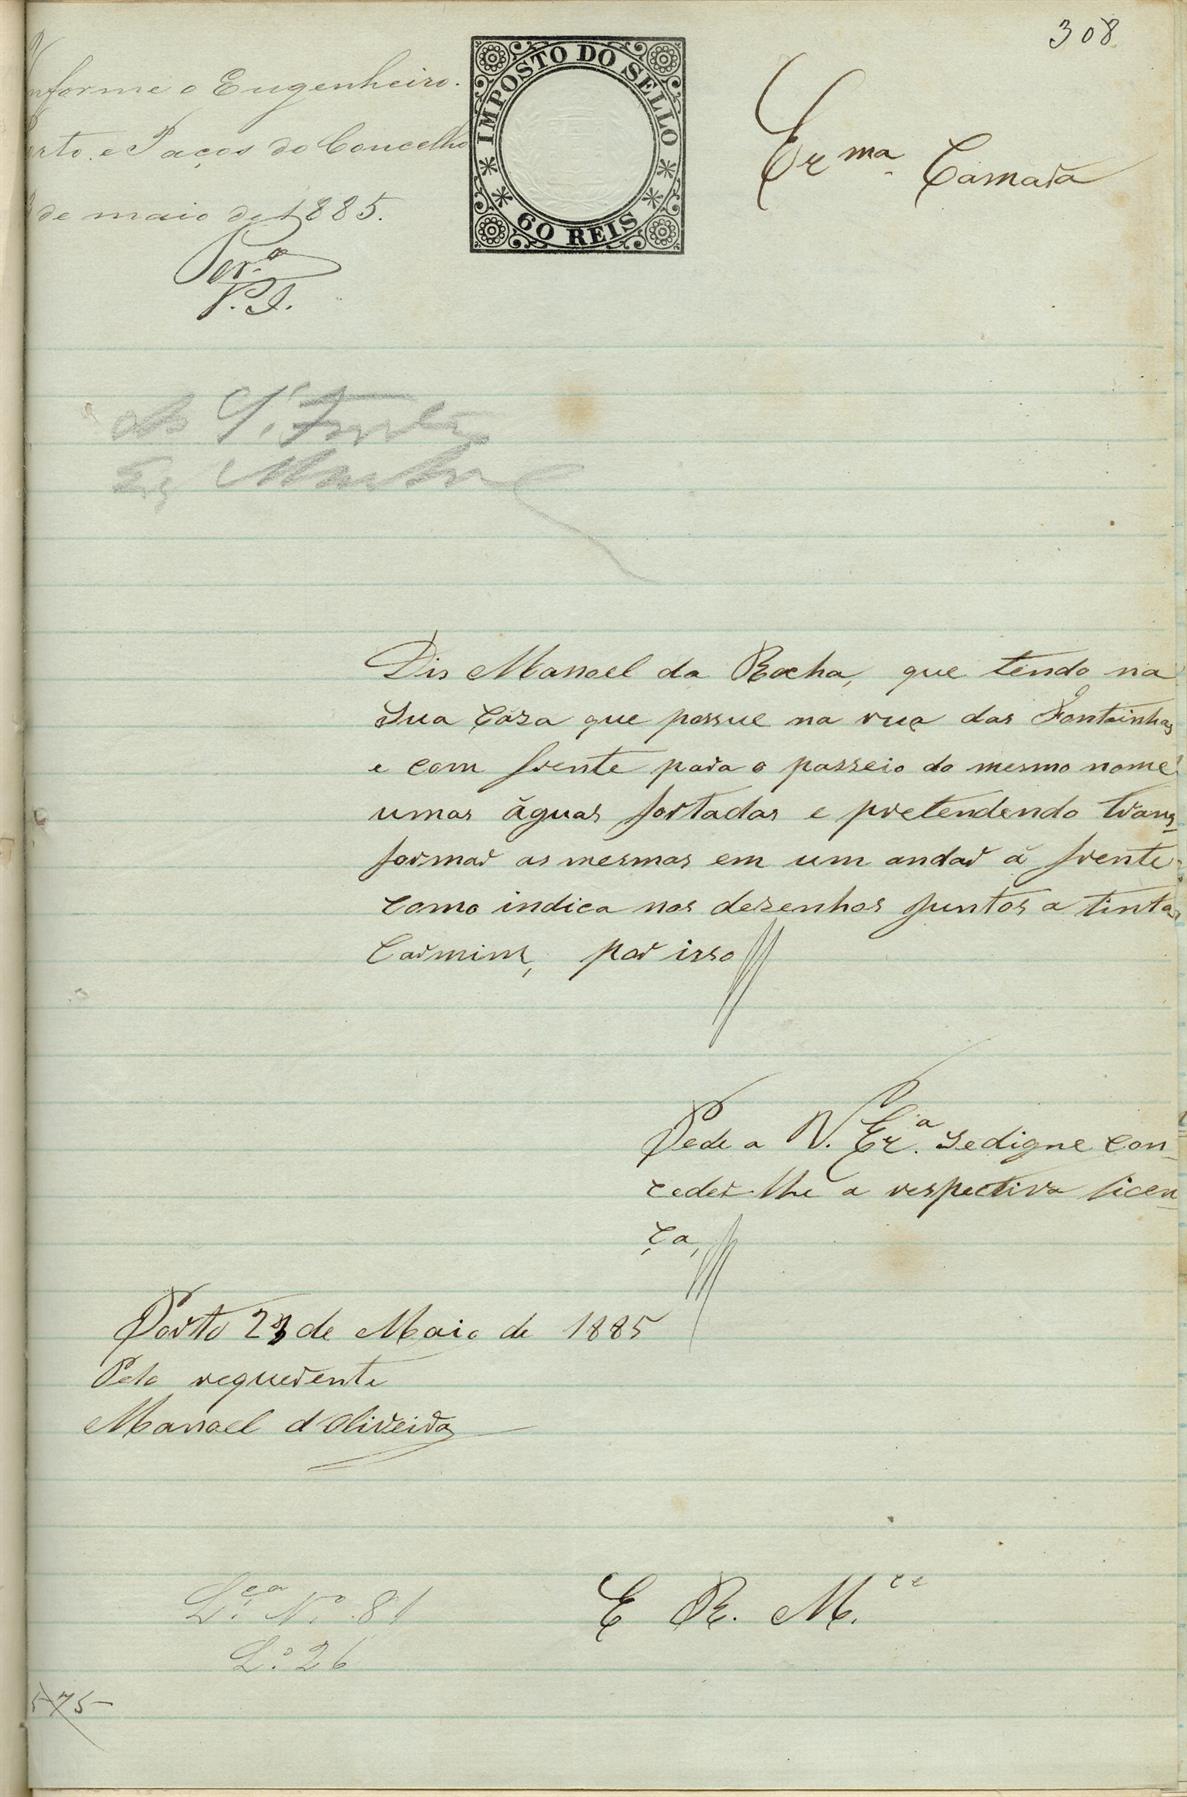 308
nforme o Engenheiro.
rto. e Paços do Concelho
de maio de 1885.
Per.ª
P. I.
IMPOSTO DO SELLO
60 REIS
Exma. Camara
Ao Sr.
Dis Manoel da Rocha, que tendo na
sua caza que possue na rua das Fontainhas
e com frente para o passeio do mesmo nome
umas águas fortadas e pretendendo trans-
formar as mesmas em um andar á frente
como indica nos dezenhos juntos a tinta
Carmim, por isso
Pede a V. Ex.ª sedigne con-
ceder-lhe a respectiva licen-
ça,
Porto 23 de Maio de 1885
Pelo requerente
Manoel d'Oliveira
E R. M.ce
L.ça Nº 81
L.º 26
575